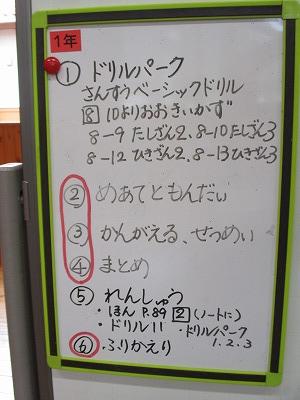 1年
① ドリルパーク
さんすうベーシックドリル
8 10よりおおきいかず
8-9 たしざん2、8-10 たしざん3
8-12 ひきざん2、8-13 ひきざん3
② めあてともんだい
③ かんがえる、せつめい
④ まとめ
⑤ れんしゅう
・ほん P.89 2 (ノートに)
・ドリル11 ・ドリルパーク
1.2.3
⑥ ふりかえり